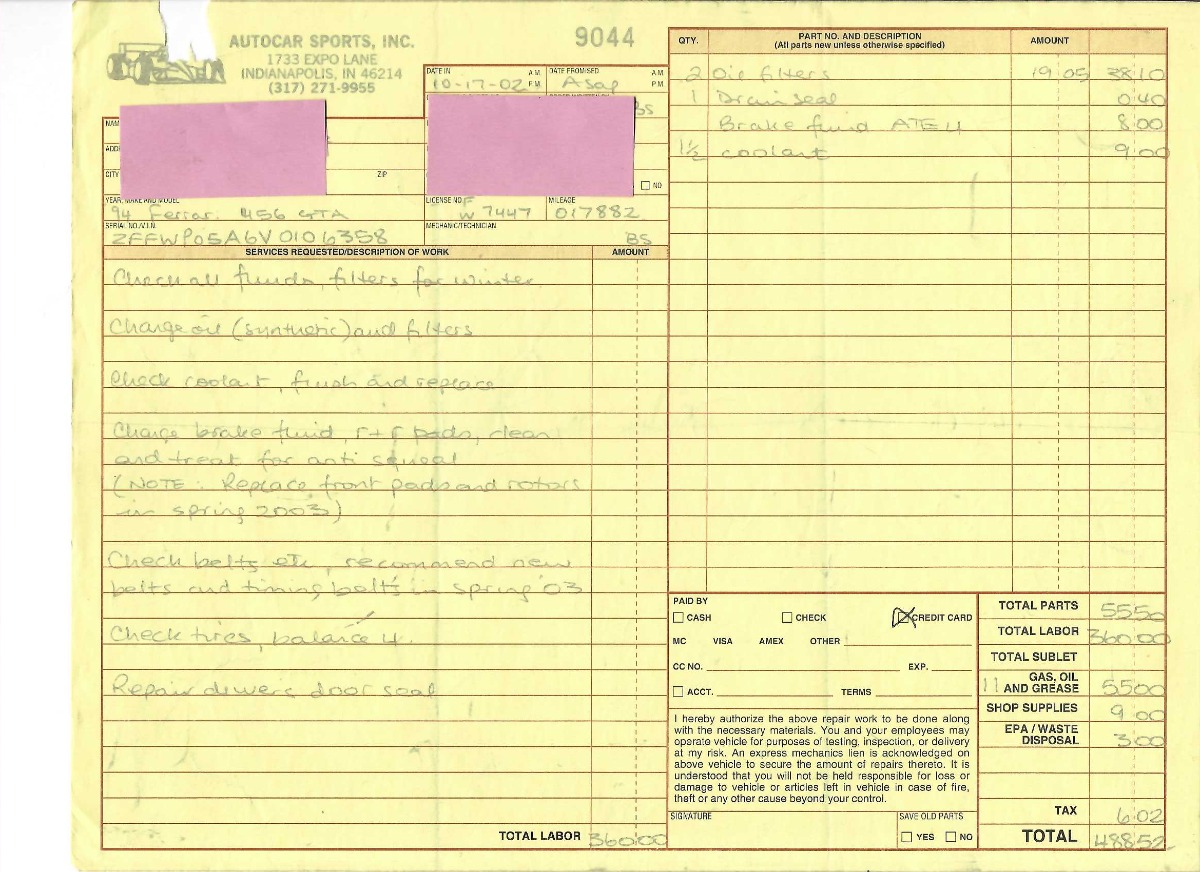 AUTOCAR SPORTS, INC.
1733 EXPO LANE
INDIANAPOLIS, IN 46214
(317) 271-9955
9044
DATE IN 10-17-02 A.M. P.M.
DATE PROMISED Asap A.M. P.M.
BS
NAM
ADD
CITY ZIP
NO
YEAR, MAKE AND MODEL
94 Ferrari 456 GTA
LICENSE NO. F W 7447
MILEAGE 017882
SERIAL NO./V.I.N.
ZFFWP05A6V0106358
MECHANIC/TECHNICIAN
BS
SERVICES REQUESTED/DESCRIPTION OF WORK AMOUNT
Check all fluids, filters for winter
Change oil (synthetic) and filters
Check coolant, flush and replace
Change brake fluid, r+r pads, clean
and treat for anti squeal
(NOTE: Replace front pads and rotors
in spring 2003)
Check belts etc, recommend new
belts and timing belts in spring '03
Check tires, balance 4.
Repair drivers door seal
TOTAL LABOR 360.00
QTY. PART NO. AND DESCRIPTION AMOUNT
(All parts new unless otherwise specified)
2 Oil filters 19 05 38 10
1 Drain seal 0 40
Brake fluid ATE 4 8 00
1½ coolant 9 00
PAID BY
CASH CHECK CREDIT CARD
MC VISA AMEX OTHER
CC NO. EXP.
ACCT. TERMS
I hereby authorize the above repair work to be done along
with the necessary materials. You and your employees may
operate vehicle for purposes of testing, inspection, or delivery
at my risk. An express mechanics lien is acknowledged on
above vehicle to secure the amount of repairs thereto. It is
understood that you will not be held responsible for loss or
damage to vehicle or articles left in vehicle in case of fire,
theft or any other cause beyond your control.
SIGNATURE
SAVE OLD PARTS
YES NO
TOTAL PARTS 55 50
TOTAL LABOR 360 00
TOTAL SUBLET
11 GAS, OIL
AND GREASE 55 00
SHOP SUPPLIES 9 00
EPA / WASTE
DISPOSAL 3 00
TAX 6 02
TOTAL 488 52